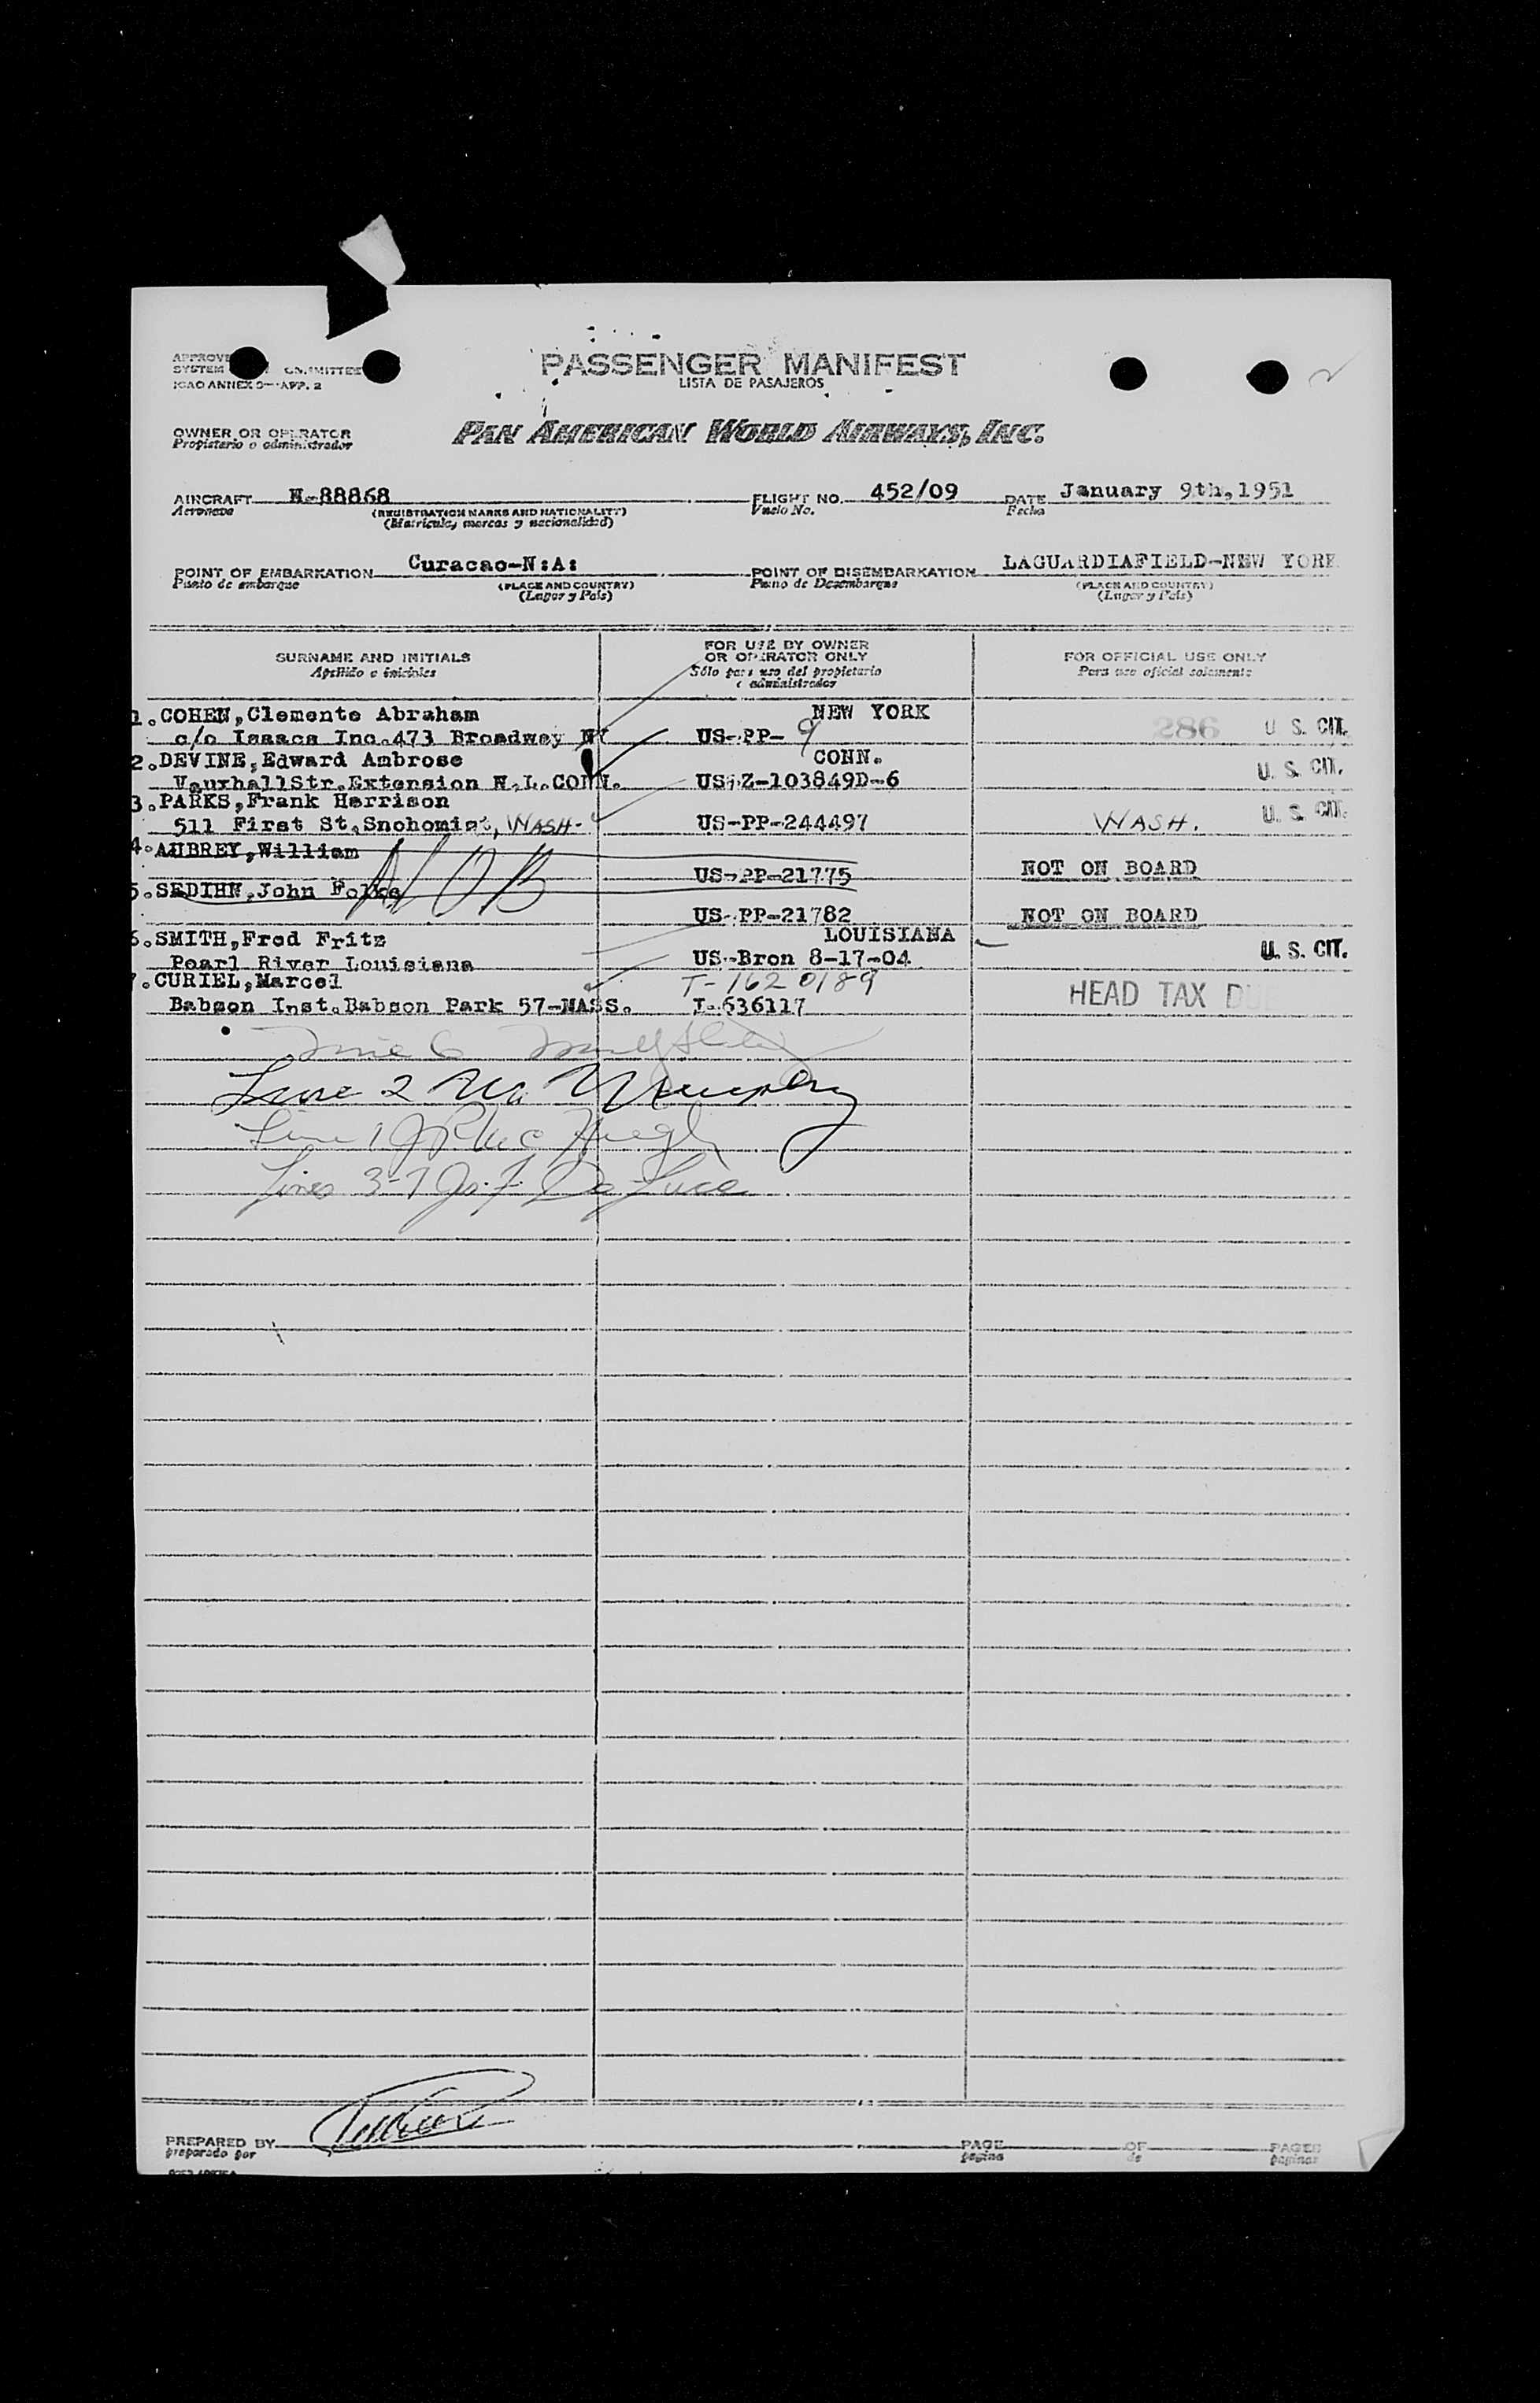 PASSENGER MANIFEST
LISTA DE PASAJEROS
SYSTEM
ICAO ANNEX 9—APP. 2
OWNER OR OPERATOR
Propietario o administrador
PAN AMERICAN WORLD AIRWAYS, INC.
AIRCRAFT N-88868 FLIGHT NO. 452/09 DATE January 9th, 1951
Aeronave (REGISTRATION MARKS AND NATIONALITY) Vuelo No. Fecha
(Matricula, marcas y nacionalidad)
POINT OF EMBARKATION Curacao-N:A: POINT OF DISEMBARKATION LAGUARDIAFIELD-NEW YORK
Punto de embarque (PLACE AND COUNTRY) Punto de Desembarque (PLACE AND COUNTRY)
(Lugar y País) (Lugar y País)
SURNAME AND INITIALS FOR USE BY OWNER OR OPERATOR ONLY FOR OFFICIAL USE ONLY
Apellido e iniciales Sólo para uso del propietario o administrador Para uso oficial solamente
1.COHEN,Clemente Abraham NEW YORK
c/o Isaacs Inc.473 Broadway NY US-PP-9 286 U. S. CIT.
2.DEVINE,Edward Ambrose CONN.
VauxhallStr.Extension N.L.CONN. US-Z-103849D-6 U. S. CIT.
3.PARKS,Frank Harrison
511 First St.Snohomist, WASH. US-PP-244497 WASH. U. S. CIT.
4.AUBREY,William
US-PP-21775 NOT ON BOARD
NOB
5.SEDIHN,John Folke
US-PP-21782 NOT ON BOARD
6.SMITH,Fred Fritz LOUISIANA
Pearl River Louisiana US-Bron 8-17-04 U. S. CIT.
7.CURIEL,Marcel T-1620189
Babson Inst.Babson Park 57-MASS. I-636117 HEAD TAX DUE
Line 6
Line 2 Wm Murphy
Line 1
Lines 3-7 Jos. F. De Luca
PREPARED BY PAGE OF PAGES
preparado por página de páginas